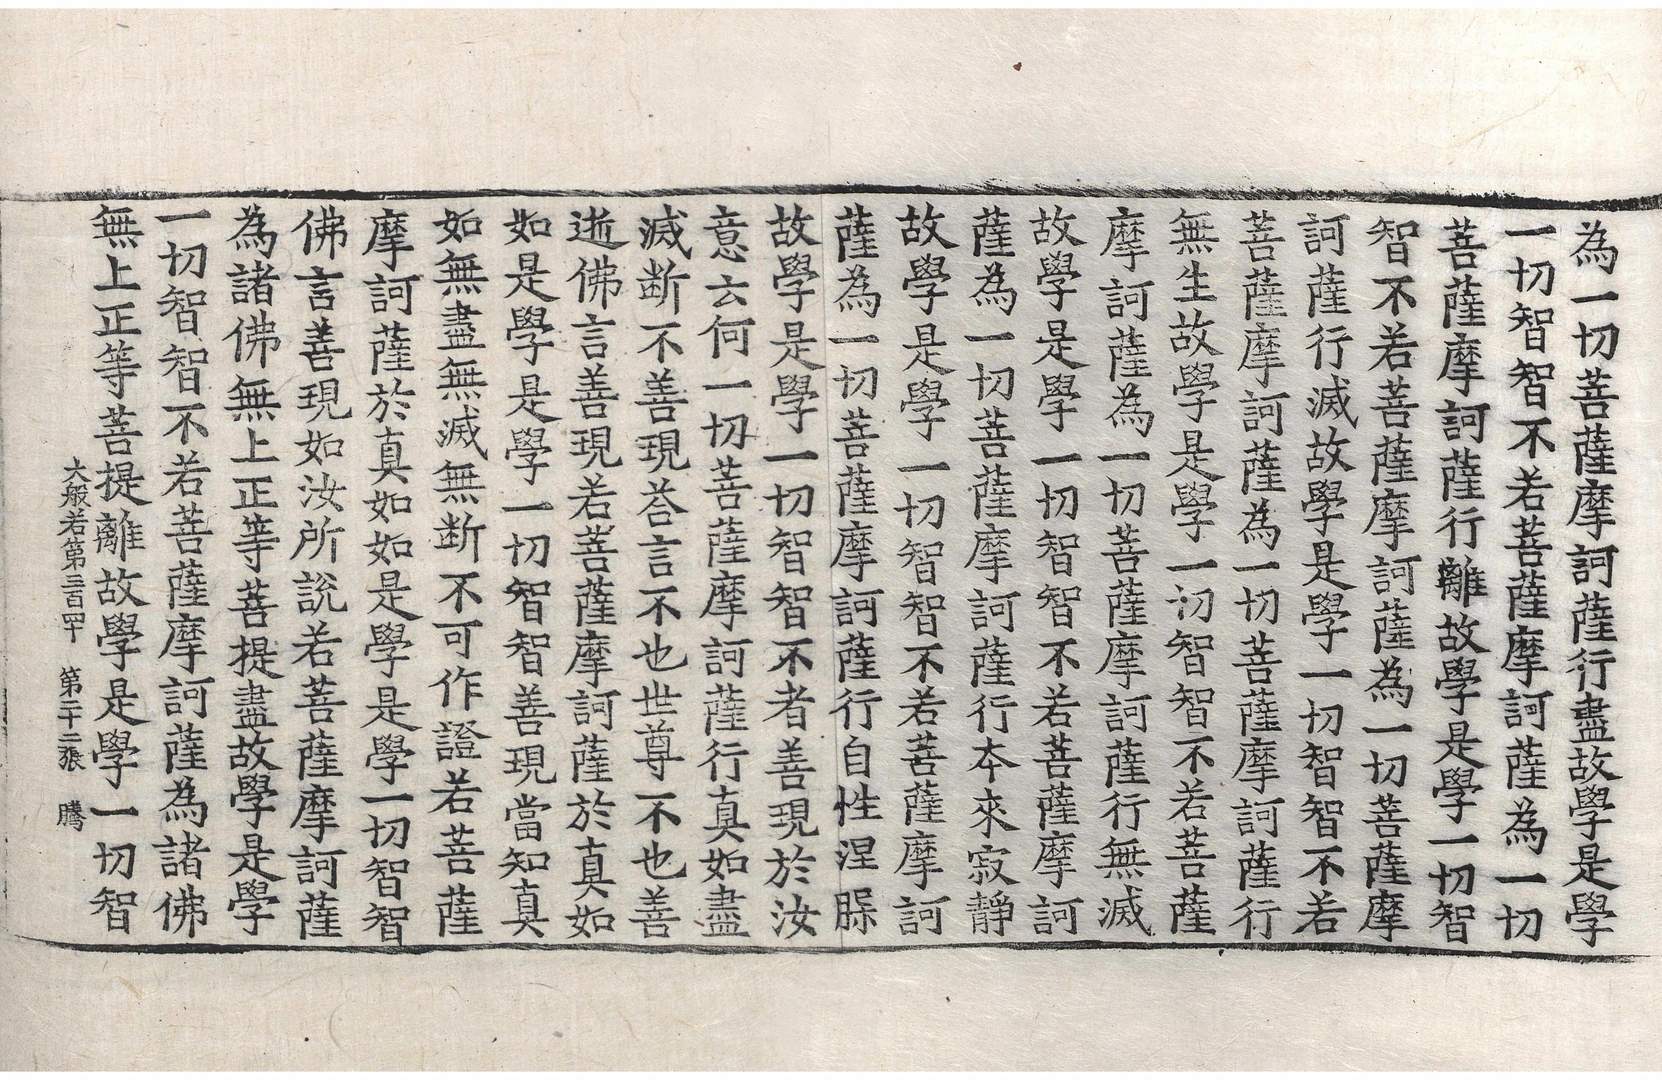 為一切菩薩摩訶薩行盡故學是學
一切智智不若菩薩摩訶薩為一切
菩薩摩訶薩行離故學是學一切智
智不若菩薩摩訶薩為一切菩薩摩
訶薩行滅故學是學一切智智不若
菩薩摩訶薩為一切菩薩摩訶薩行
無生故學是學一切智智不若菩薩
摩訶薩為一切菩薩摩訶薩行無滅
故學是學一切智智不若菩薩摩訶
薩為一切菩薩摩訶薩行本來寂靜
故學是學一切智智不若菩薩摩訶
薩為一切菩薩摩訶薩行自性涅槃
故學是學一切智智不者善現於汝
意云何一切菩薩摩訶薩行真如盡
滅断不善現荅言不也世尊不也善
逝佛言善現若菩薩摩訶薩於真如
如是學是學一切智智善現當知真
如無盡無滅無断不可作證若菩薩
摩訶薩於真如如是學是學一切智智
佛言善現如汝所說若菩薩摩訶薩
為諸佛無上正等菩提盡故學是學
一切智智不若菩薩摩訶薩為諸佛
無上正等菩提離故學是學一切智
大般若第三百卌 第二十二張 騰